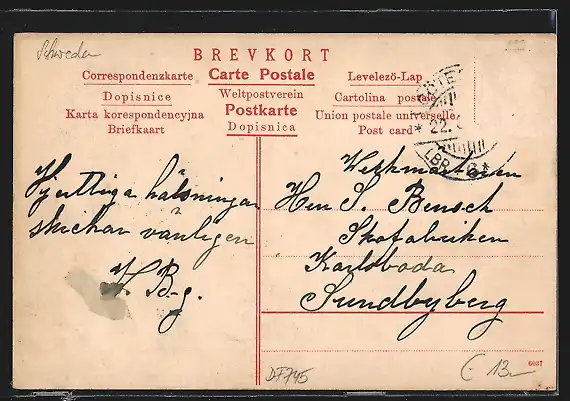 Schweden
BREVKORT
Correspondenzkarte Carte Postale Levelező-Lap
Dopisnice Weltpostverein Cartolina postale
Karta korespondencyjna Postkarte Union postale universelle
Briefkaart Dopisnica Post card
22.
LBR
Hjertliga hälsningar
skickar vänligen
V. B-g.
Werkmästaren
Herr S. Bensch
Skofabriken
Karlsboda
Sundbyberg
6037
DF745
€ 13,-